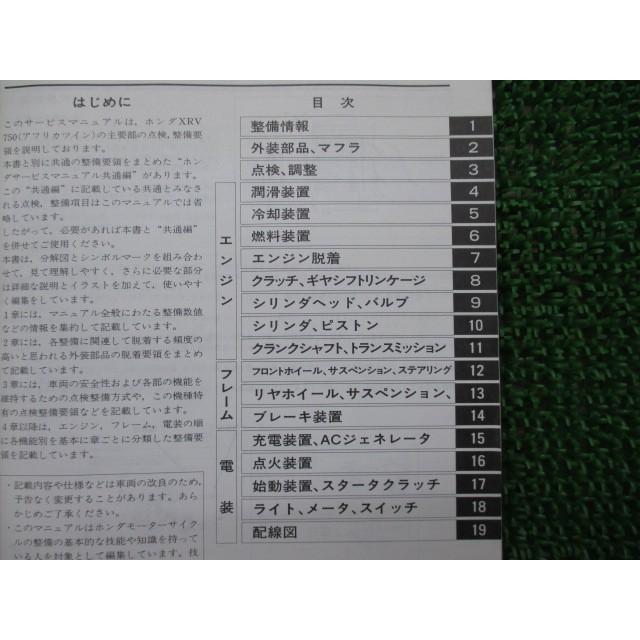 はじめに
このサービスマニュアルは，ホンダXRV
750(アフリカツイン)の主要部の点検，整備要
領を説明しております。
本書と別に共通の整備要領をまとめた"ホン
ダサービスマニュアル共通編"があります。
この"共通編"に記載している共通とみなさ
れる点検，整備項目はこのマニュアルでは省
略しています。
したがって，必要があれば本書と"共通編"
を併せてご使用ください。
本書は，分解図とシンボルマークを組み合わ
せて，見て理解しやすく，さらに必要な部分
は詳細な説明とイラストを加えて，使いやす
く編集をしています。
1章には，マニュアル全般にわたる整備数値
などの情報を集約して記載しています。
2章には，各整備に関連して脱着する頻度の
高いと思われる外装部品の脱着要領をまとめ
て記載しています。
3章には，車両の安全性および各部の機能を
維持するための点検整備方式や，この機種特
有の点検整備要領などを記載しています。
4章以降は，エンジン，フレーム，電装の順
に各機能別を基本に章ごとに分類した整備要
領を記載しています。
・記載内容や仕様などは車両の改良のため，
予告なく変更することがあります。あら
かじめご了承ください。
・このマニュアルはホンダモーターサイク
ルの整備の基本的な技能や知識を持って
いる人を対象として編集しています。技
目 次
整備情報 1
外装部品、マフラ 2
点検、調整 3
エンジン
潤滑装置 4
冷却装置 5
燃料装置 6
エンジン脱着 7
クラッチ、ギヤシフトリンケージ 8
シリンダヘッド、バルブ 9
シリンダ、ピストン 10
クランクシャフト、トランスミッション 11
フレーム
フロントホイール、サスペンション、ステアリング 12
リヤホイール、サスペンション、 13
ブレーキ装置 14
電装
充電装置、ACジェネレータ 15
点火装置 16
始動装置、スタータクラッチ 17
ライト、メータ、スイッチ 18
配線図 19